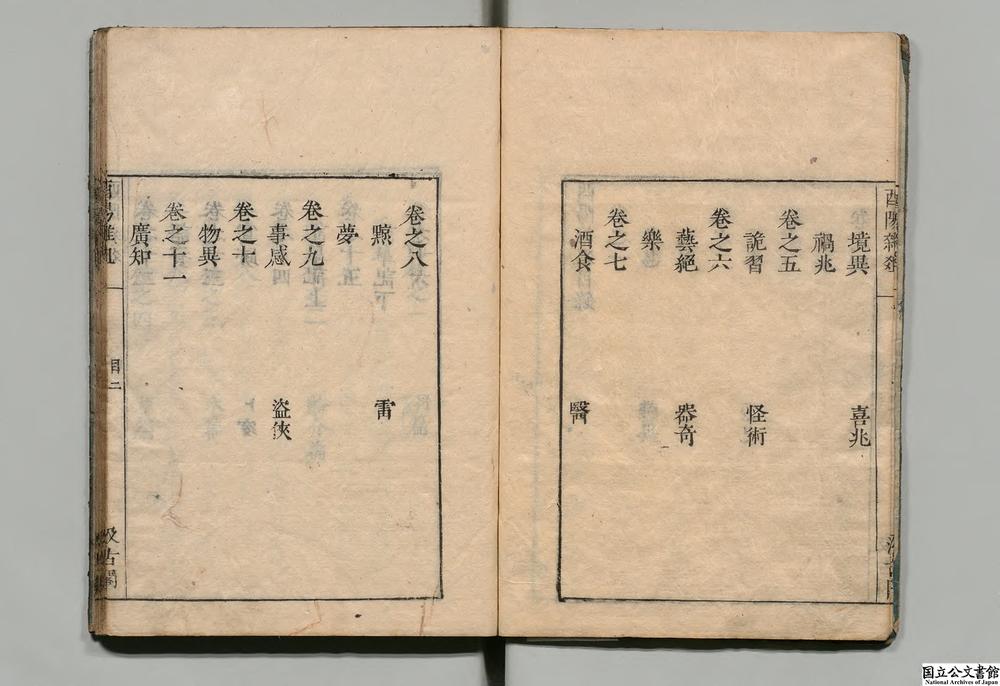 酉陽雜俎
境異 喜兆
禍兆
卷之五
詭習 怪術
卷之六
藝絕 器奇
樂
卷之七
酒食 醫
卷之八
黥 雷
夢
卷之九
事感 盜俠
卷之十
物異
卷之十一
廣知
目二
汲古閣
国立公文書館
National Archives of Japan